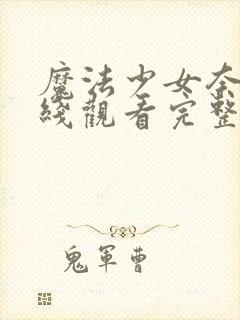 魔法少女奈
綫觀看完整
鬼軍曹